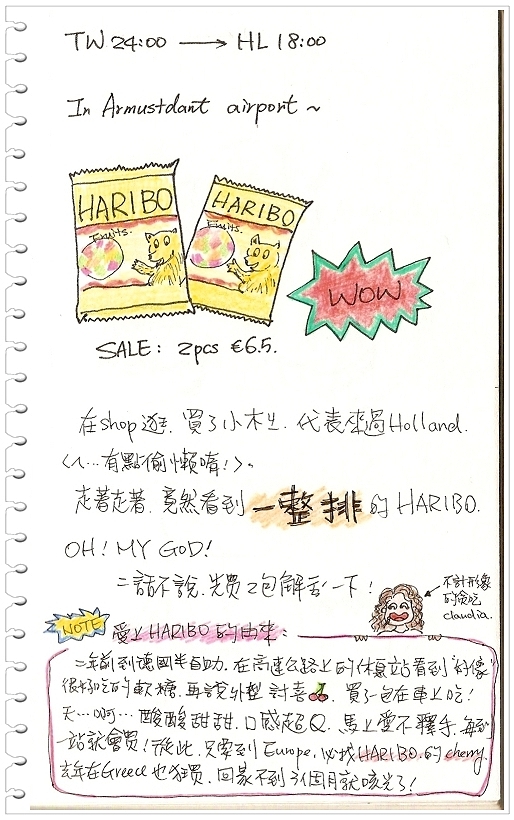 TW 24:00 → HL 18:00
In Armustdant airport ~
HARIBO
Fruits.
HARIBO
Fruits.
WOW
SALE: 2pcs €6.5.
在shop逛,買了小木屐,代表來過Holland.
<ㄟ...有點偷懶唷!>。
走著走著,竟然看到一整排的HARIBO.
OH! MY GOD!
二話不說,先買2包解饞一下!
不計形象
的貪吃
claudia.
NOTE 愛上HARIBO的由來:
二年前到德國半自助,在高速公路上的休息站看到"好像"
很好吃的軟糖,再說外型討喜,買了一包在車上吃!
天…啊…酸酸甜甜,口感超Q,馬上愛不釋手,每到
一站就會買!從此,只要到Europe,必找HARIBO的cherry.
去年在Greece也狂買,回家不到1個月就嗑光了!